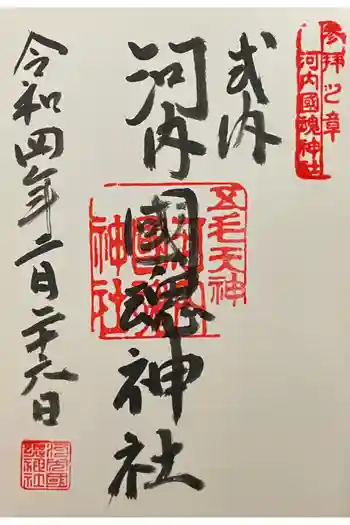 参拝之章
河内國魂神社
式内
河内國魂神社
五毛天神
河内
國魂
神社
令和四年二月二十九日